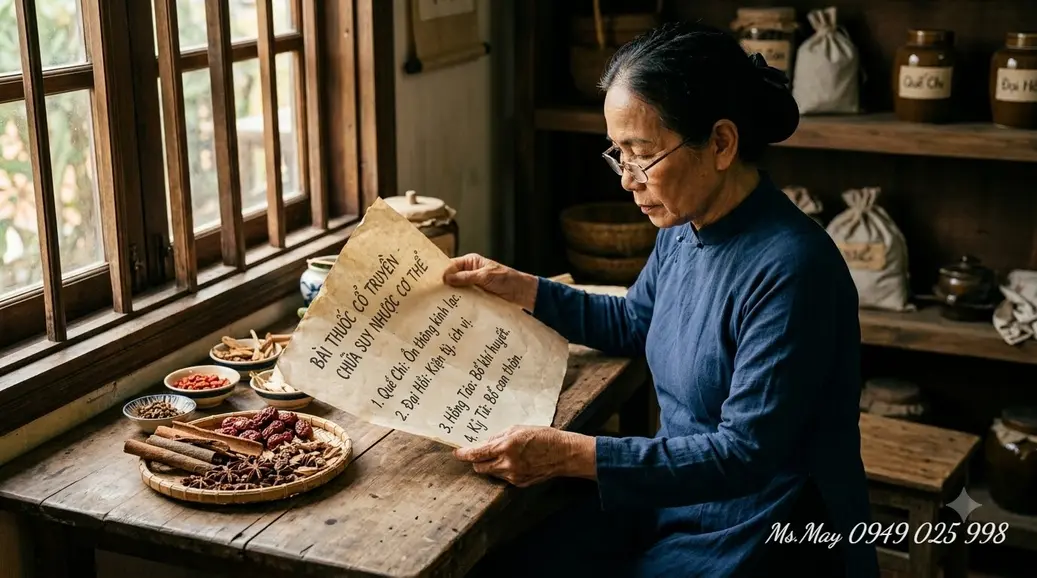 BÀI THUỐC CỔ TRUYỀN
CHỮA SUY NHƯỢC CƠ THỂ
1. Quế Chi: Ôn thông kinh lạc.
2. Đại Hồi: Kiện tỳ, ích vị.
3. Hồng Táo: Bổ khí huyết.
4. Kỷ Tử: Bổ can thận.
Quế Chi
Đại Hồ
Ms.May 0949 025 998